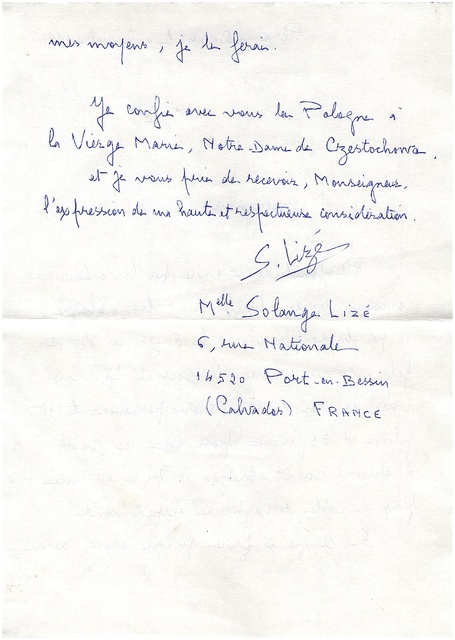 mes moyens, je le ferai.
Je confie avec vous la Pologne à
la Vierge Marie, Notre-Dame de Czestochowa,
et je vous prie de recevoir, Monseigneur,
l'expression de ma haute et respectueuse considération.
S. Lizé
Melle Solange Lizé
6, rue Nationale
14520 Port-en-Bessin
(Calvados) FRANCE